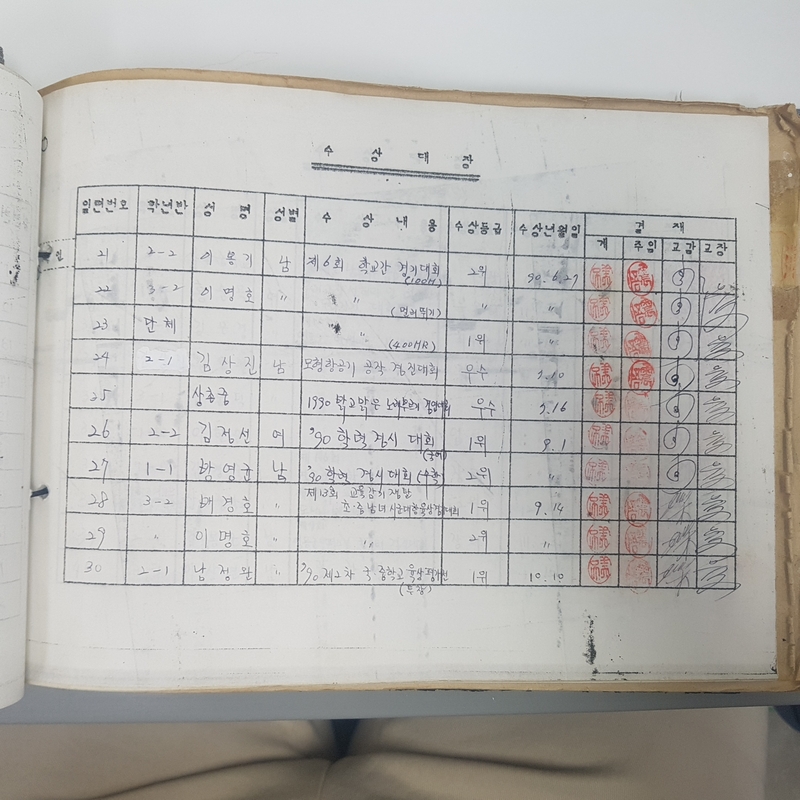 수 상 대 장
일련번호 학년반 성 명 성별 수 상 내 용 수상등급 수상년월일 결 재
계 주임 교감 교장
21 2-2 이 용 기 남 제6회 학교간 경기대회 2위 90.6.27
(100M)
22 3-2 이 명 호 〃 〃 〃 〃
(멀리뛰기)
23 단체 〃 1위 〃
(400MR)
24 2-1 김 상 진 남 모형항공기 공작 경진대회 우수 5.10
25 1990 밝고맑은 노래부르기 경연대회 우수 5.16
26 2-2 김 정 선 여 '90 학력 경시 대회 1위 9.1
(국어)
27 1-1 황 영 남 '90 학력 경시대회 (수학) 2위 〃
28 3-2 배 경 호 〃 제13회 교육감기쟁탈 1위 9.14
초·중남녀 시군대항육상경기대회
29 〃 이 명 호 〃 〃 2위 〃
30 2-1 남 정 완 〃 '90 제2차 중학교 육상 1위 10.10